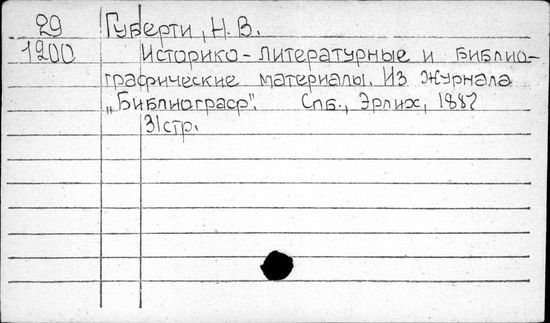 29 Губерти, Н. В.
1200 Историко-литературные и библио-
графические материалы. Из журнала
„Библиограф". Спб., Эрлих, 1887
31 стр.